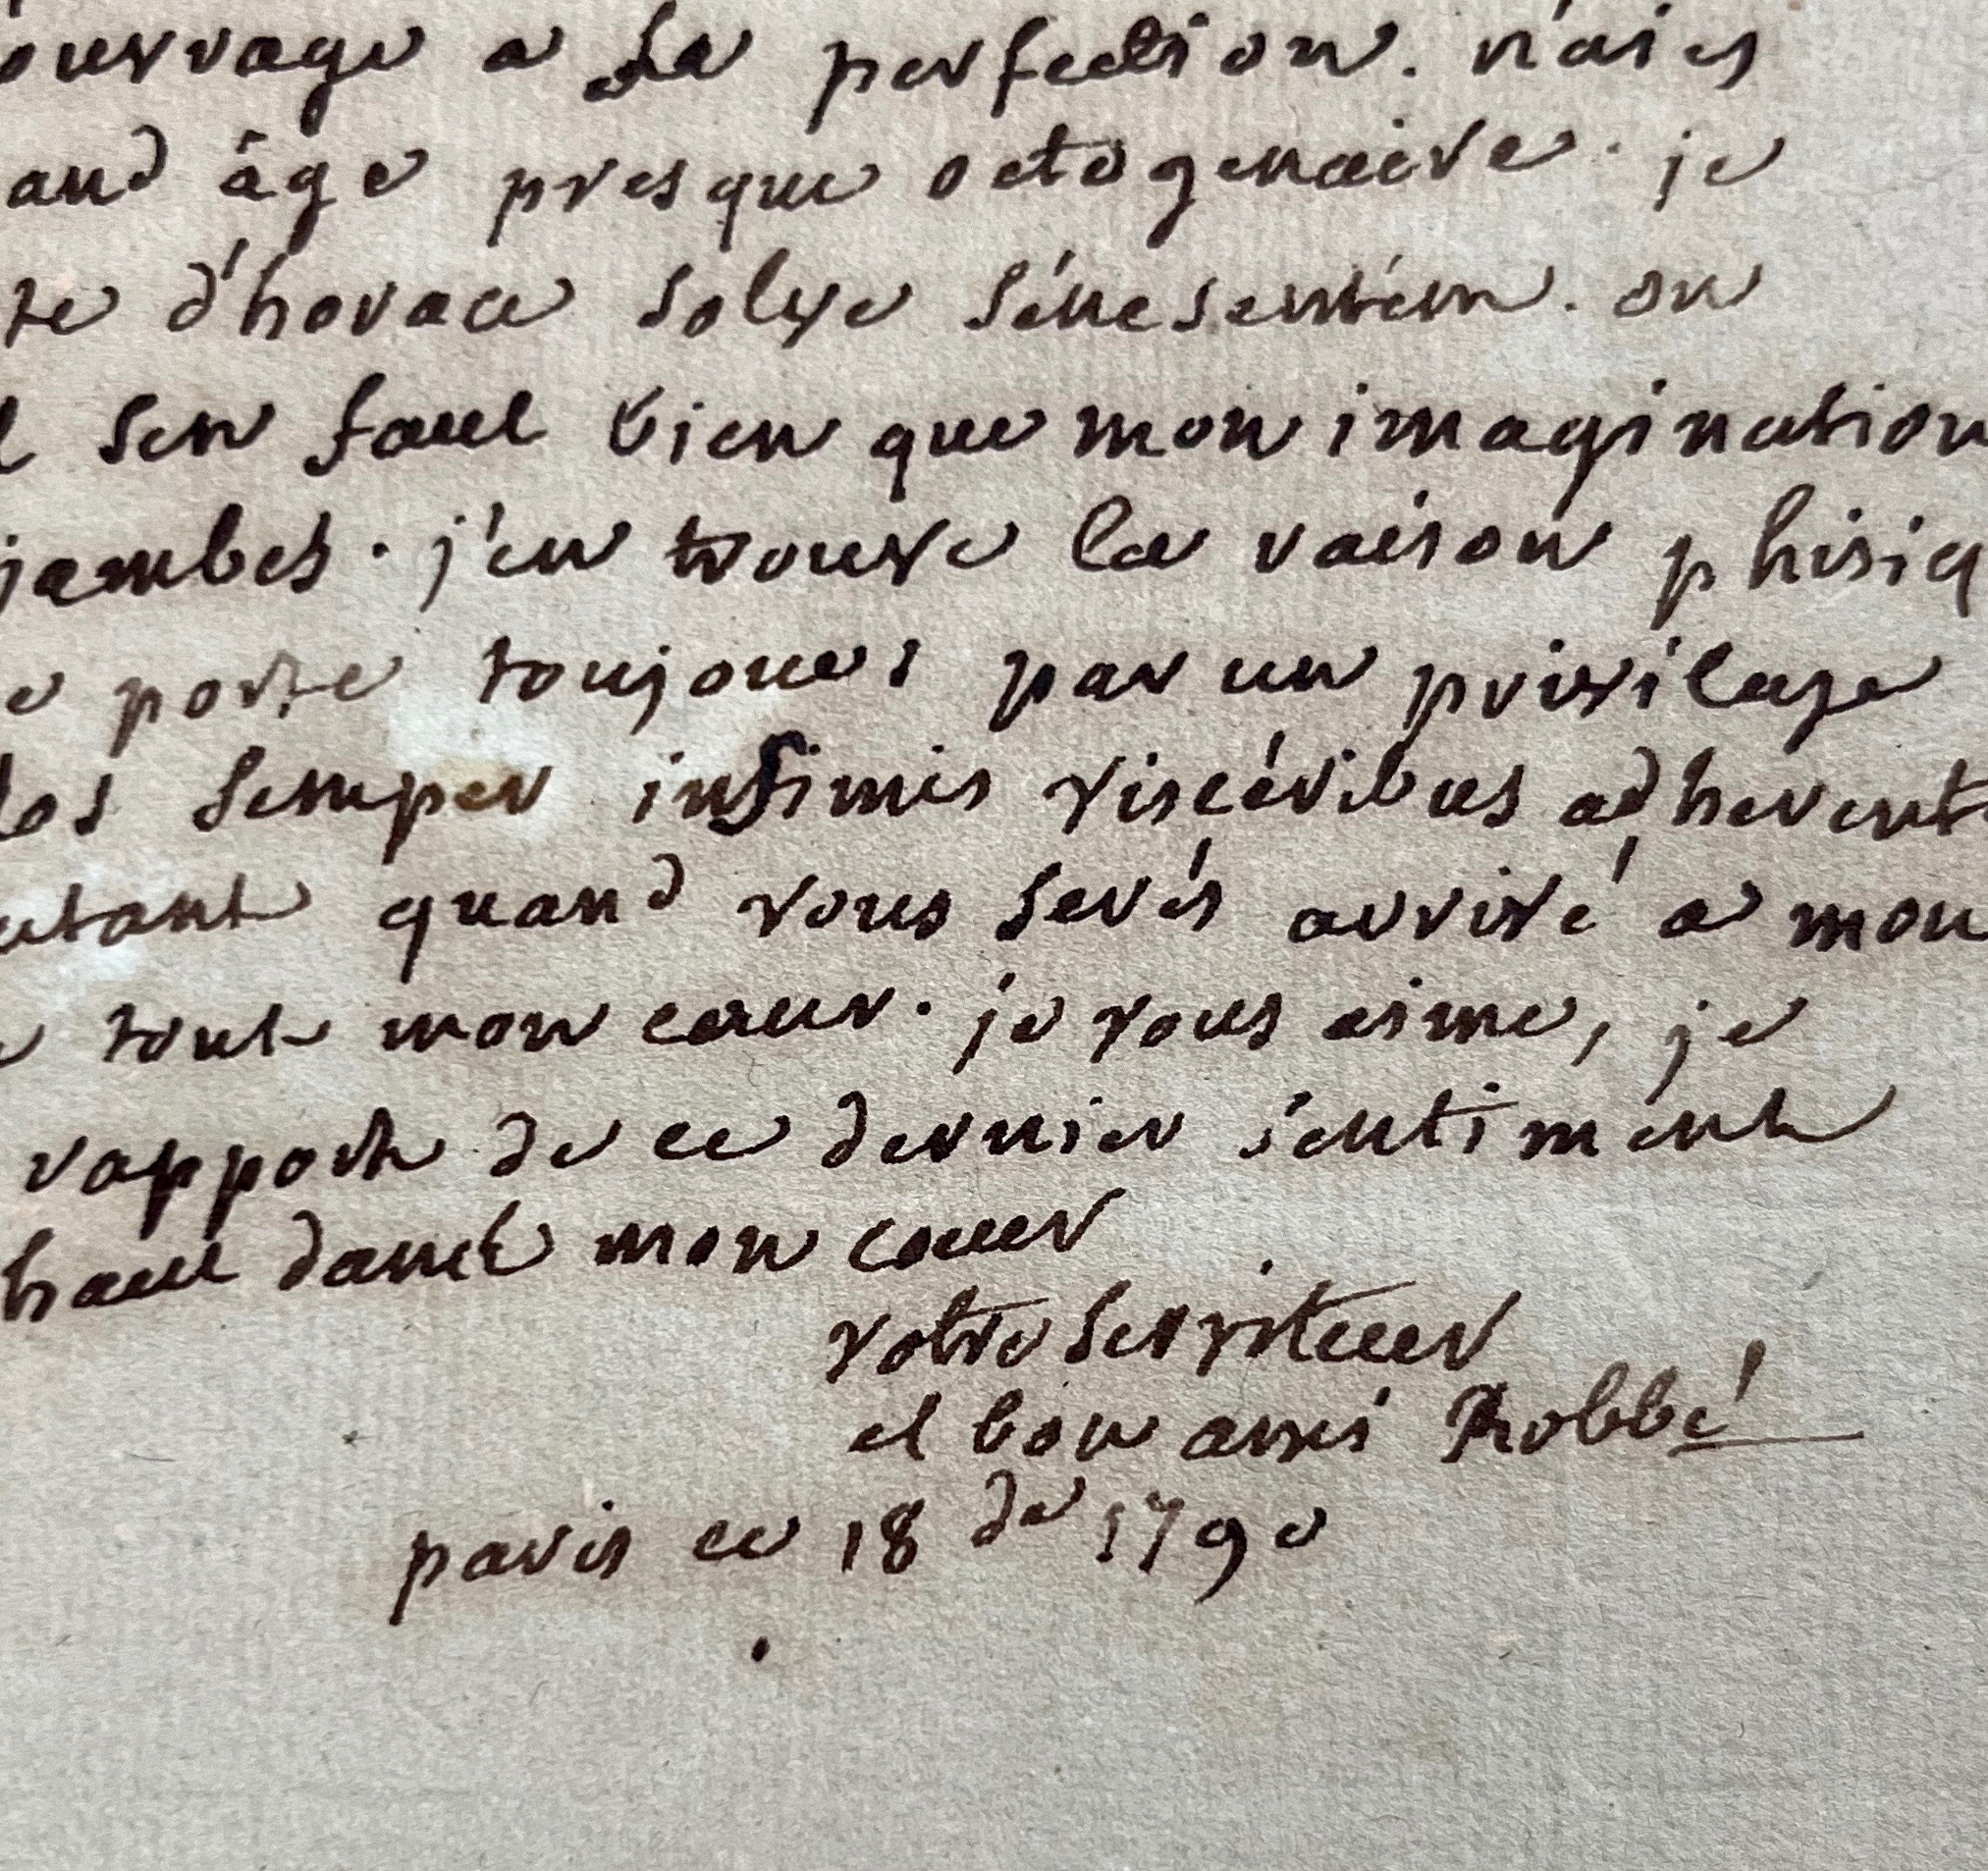 ouvrage a Sa perfection. mais
and âge presque octogenaire. je
te d'horace solve sénescentem. on
l sen faut bien que mon imagination
jambes. j'en trouve la raison phisiq
e porte toujours par un privilege
los semper infimis viscéribus adherent
utant quand vous serés arrivé a mon
e tout mon coeur. je vous aime, je
rapport de ce dernier séntimént
haut dans mon coeur
votre serviteur
et bon ami Robbé
paris ce 18 de 1790